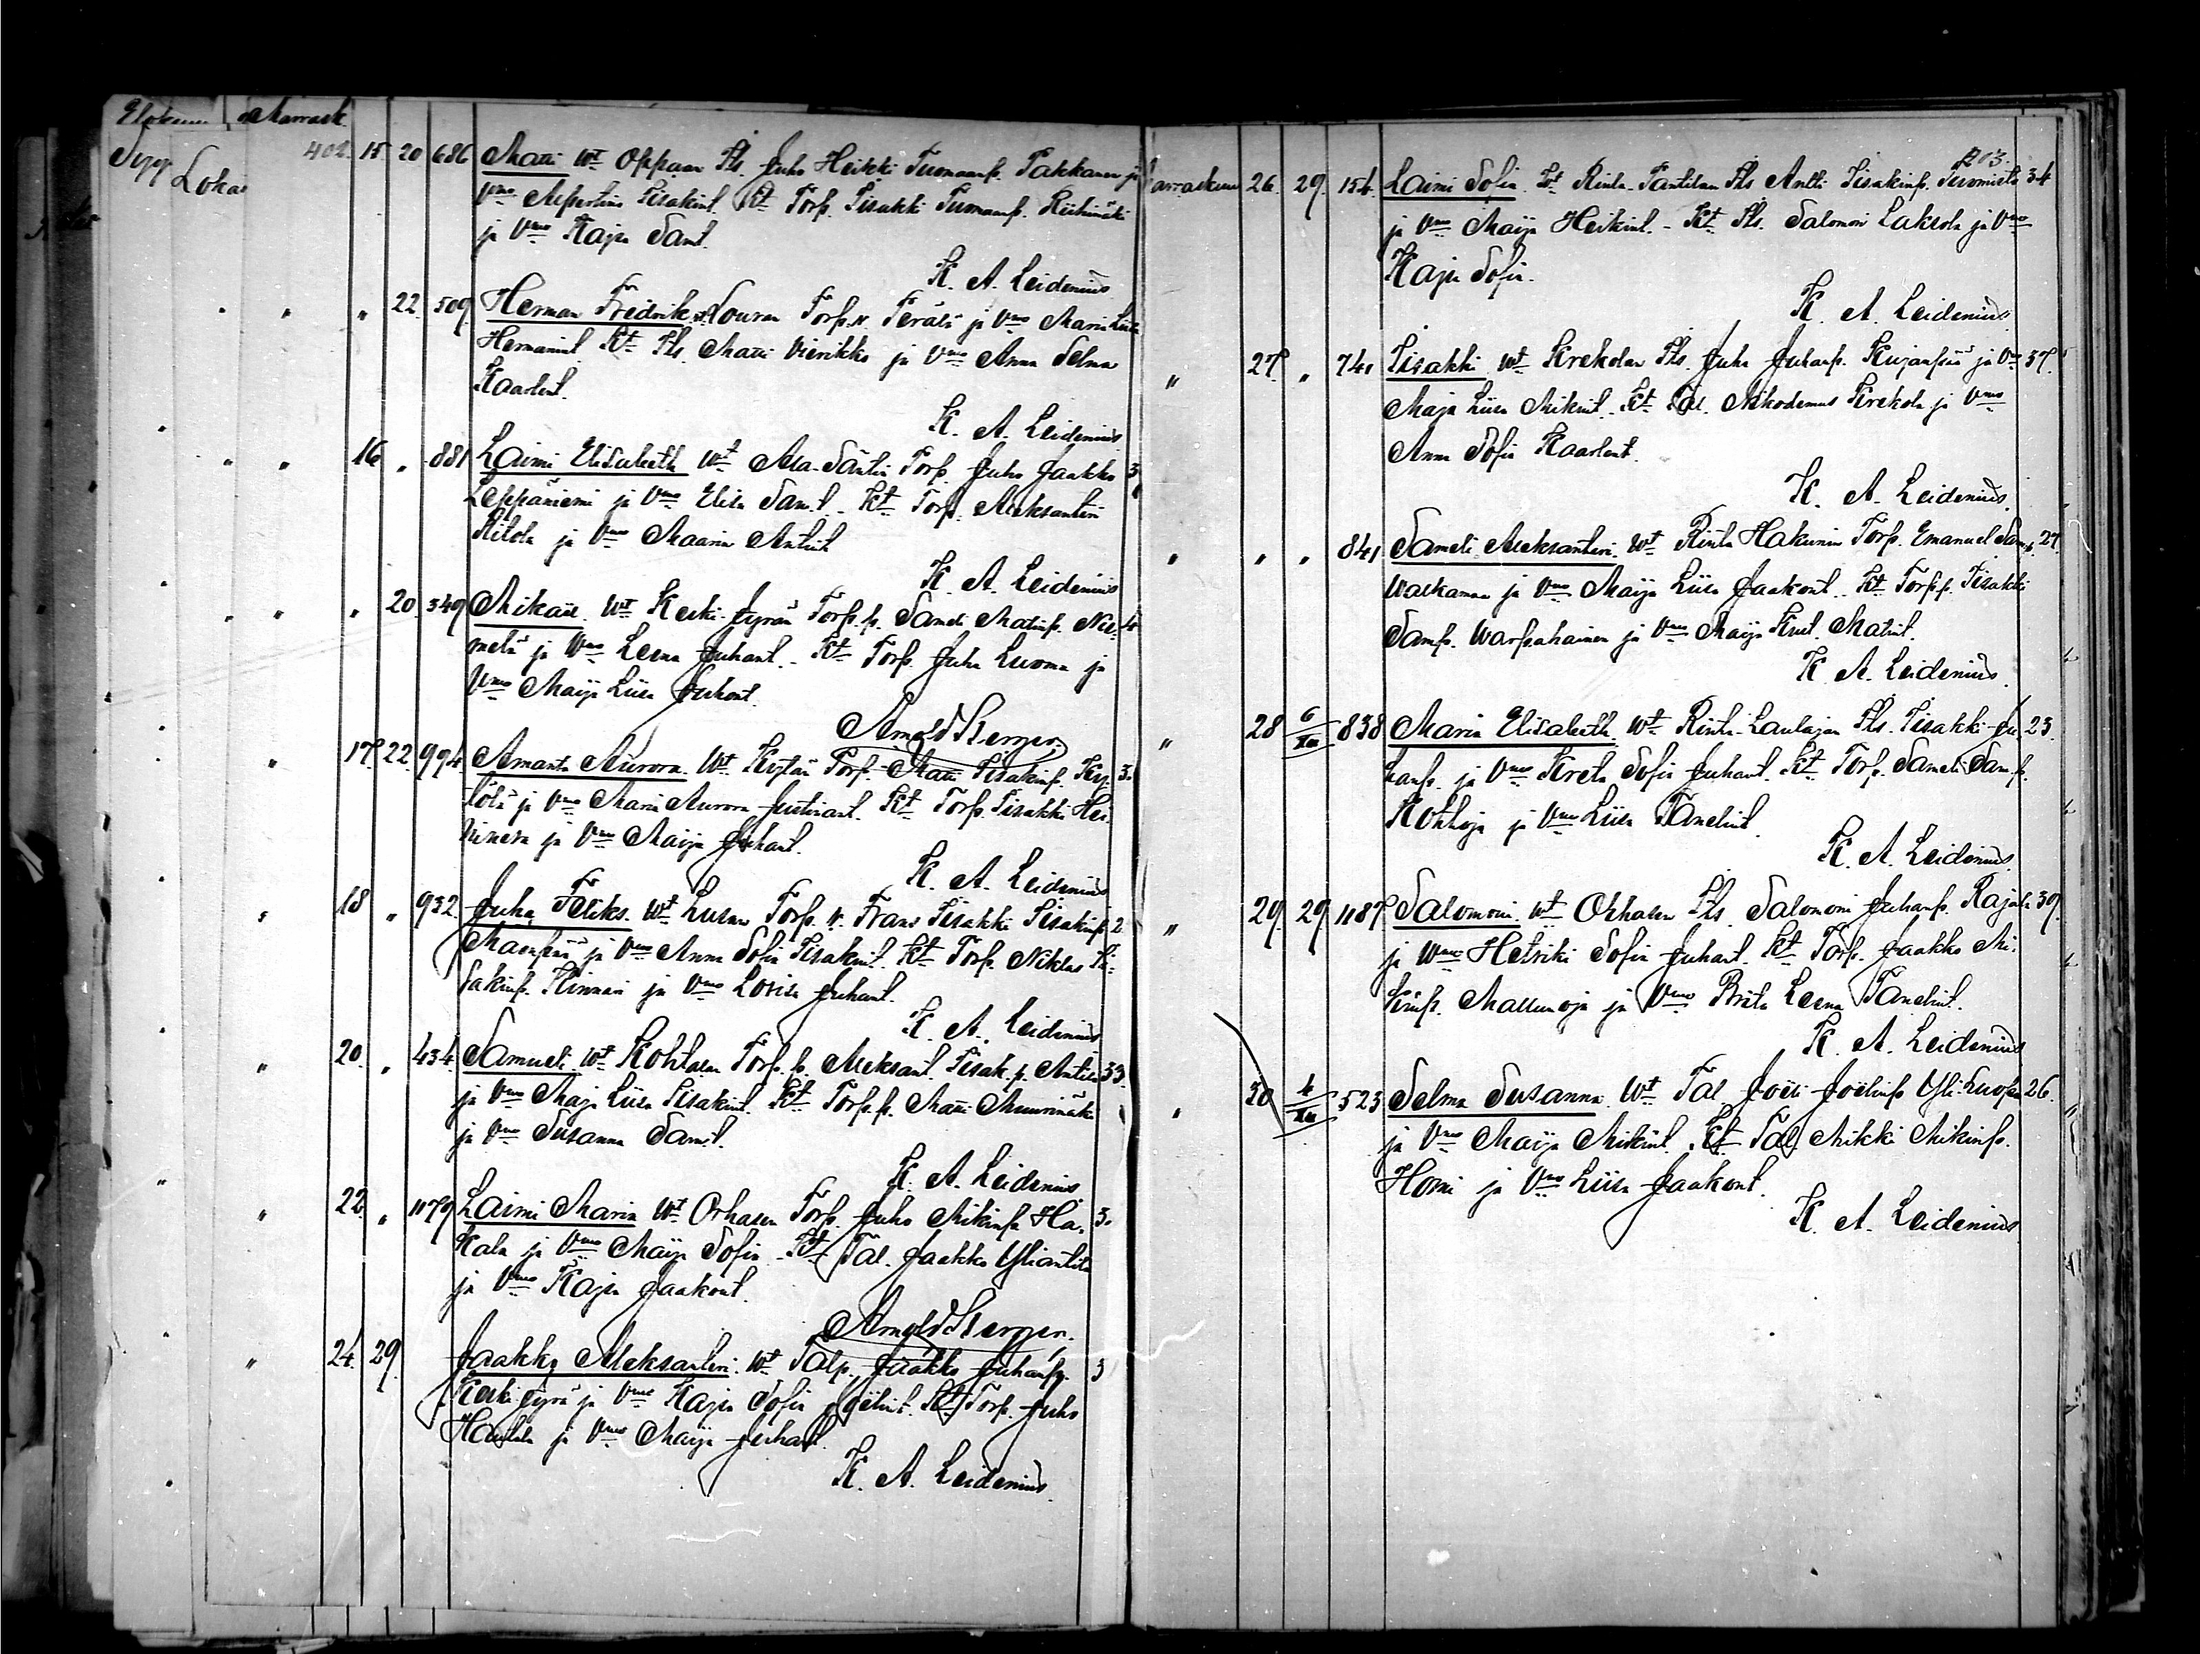 Marrask.
Lokа
402. 15 20 686 Matti Wt Oppaan Itls. Juho Heikki Tuomaanp. Pakkanen ja
Vmo Albertina Iisakint. Kt Torp. Iisakki Tuomaanp. Riihimäki
ja Vmo Kajsa Samt.
K. A. Leidenius
" 22 509 Herman Fredrik Torp. v. Perälä ja Vmo Maria Liisa
Hermanint. Kt Itls. Matti Vierikko ja Vmo Anna Selma
Kaarlent.
K. A. Leidenius
16 " 881 Laimi Elisabeth Wt Ala-Säntin Torp. Juho Jaakko
Leppäniemi ja Vmo Elisa Samt. Kt Torp. Aleksanteri
Ritola ja Vmo Maaria Antint.
K. A. Leidenius
" 20 349 Mikael Wt Keski-Jyrän Torp. p. Sameli Matinp. Nie-
melä ja Vmo Leena Juhant. Kt Torp. Juha Luoma ja
Vmo Maija Liisa Juhont.
Arnold Berger.
17 22 994 Amanta Aurora Wt Kytän Torp. Matti Iisakinp. Ky-
tölä ja Vmo Maria Aurora Kt Torp. Iisakki Hei-
ninen ja Vmo Maija Juhant.
K. A. Leidenius
18 " 932 Juha Feliks Wt Lusan Torp. v. Frans Iisakki Iisakinp.
Maenpää ja Vmo Anna Sofia Iisakint. Kt Torp. Niklas Ii-
sakinp. Kinnari ja Vmo Lovisa Juhant.
K. A. Leidenius
" 20 " 434 Samueli Wt Kohtalan Torp. p. Aleksant. Iisak. p. Antila 33.
ja Vmo Maja Liisa Iisakint. Kt Torp. p. Matti Muurimäki
ja Vmo Susanna Samt.
K. A. Leidenius
" 22 " 1079 Laimi Maria Wt Orhasen Torp. Juho Mikinp. Ha-
kala ja Vmo Maija Sofia Kt Tal. Jaakko Yliantila
ja Vmo Kajsa Jaakont.
Arnold Berger.
" 24 29 Jaakko Aleksanteri Wt Talp. Jaakko Juhanp.
Keskijyrä ja Vmo Kajsa Sofia Joelint. Kt Torp. Juho
Hautala ja Vmo Maija Juhant.
K. A. Leidenius
203.
arraskuu 26. 29. 154. Laimi Sofia Wt Rinta-Panttilan Itls Antti Iisakinp. Tuomisto 34
ja Vmo Maija Heikint. - Kt Itls. Salomon Laksola ja Vmo
Kajsa Sofia.
K. A. Leidenius
" 27. " 741 Iisakki Wt Krekolan Itls. Juha Juhanp. Kujanpää ja Vmo 37.
Maja Liisa Mikint. Kt Tal. Nikodemus Krekola ja Vmo
Anna Sofia Kaarlent.
K. A. Leidenius
" " " 841 Sameli Aleksanteri Wt Rinta Hakunin Torp. Emanuel Samp. 27.
Walkama ja Vmo Maija Liisa Jaakont. Kt Torp. p. Iisakki
Samp. Warpahainen ja Vmo Maija Kust. Matint.
K. A. Leidenius.
" 28 6/XII 838 Maria Elisabeth Wt Rinta-Laulajan Itls. Iisakki Ju- 23.
hanp. ja Vmo Kreta Sofia Juhant. Kt Torp. Sameli Samp.
Kohtoja ja Vmo Liisa Tanelint.
K. A. Leidenius
" 29. 29. 1187 Salomoni Wt Orhasen Itls. Salomoni Juhanp. Rajala 39.
ja Vmo Hetviki Sofia Juhant. Kt Torp. Jaakko Mi-
kinp. Mallunoja ja Vmo Brita Leena Tanelint.
K. A. Leidenius
" 30 4/XII 523 Selma Susanna Wt Tal. Joeli Joelinp. Yli-Luopa 26.
ja Vmo Maija Mikint. Kt Tal. Mikki Mikinp.
Homi ja Vmo Liisa Jaakont.
K. A. Leidenius